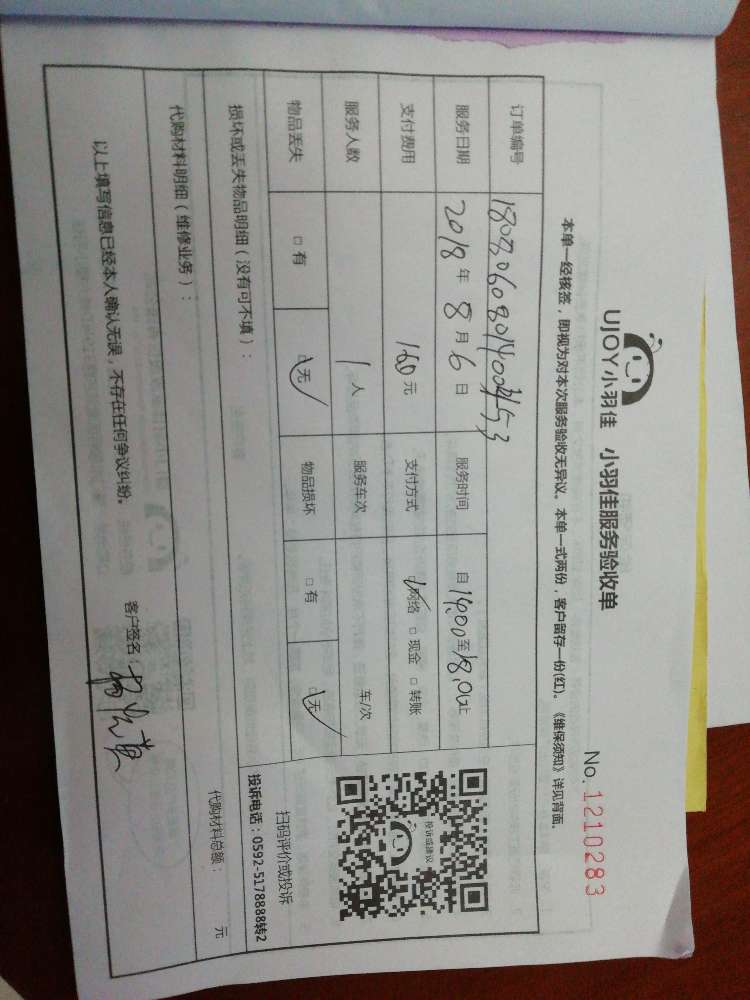 UJOY小羽佳 小羽佳服务验收单
No. 1210283
本单一经核签，即视为对本次服务验收无异议。本单一式两份，客户留存一份(红)。《维保须知》详见背面。
订单编号
服务日期 2018 年 8 月 6 日 服务时间 自 14:00 至 18:00 止
支付费用 160 元 支付方式 ☑网络 □ 现金 □ 转账
服务人数 1 人 服务车次 车/次
物品丢失 □ 有 ☑无 物品损坏 □ 有 ☑无
投诉或建议
扫码评价或投诉
投诉电话：0592-5178888转2
损坏或丢失物品明细（没有可不填）：
代购材料明细（维修业务）：
代购材料总额： 元
以上填写信息已经本人确认无误，不存在任何争议纠纷。 客户签名：